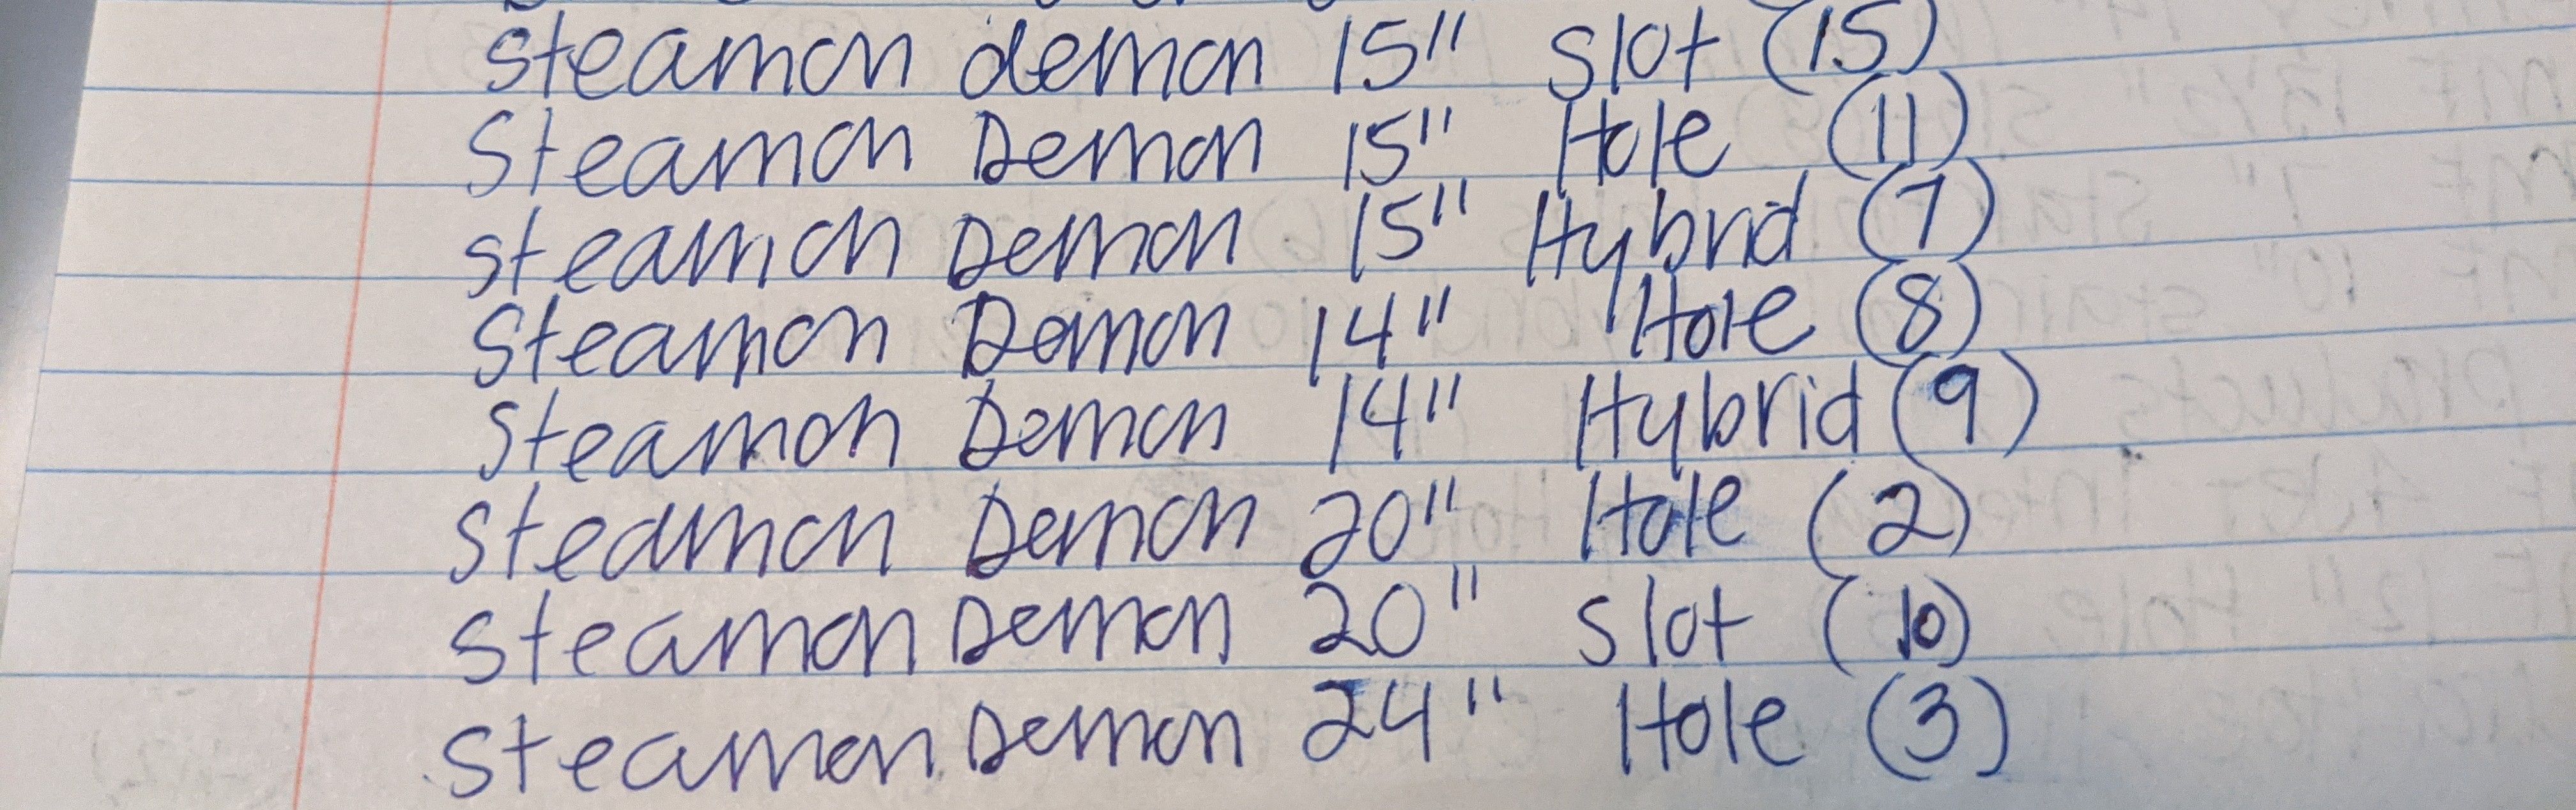 Steamon demon 15" slot (15)
Steamon Demon 15" Hole (11)
steamon Demon 15" Hybrid (7)
Steamon Demon 14" Hole (8)
Steamon Demon 14" Hybrid (9)
Steamon Demon 20" Hole (2)
Steamon Demon 20" slot (10)
Steamon Demon 24" Hole (3)